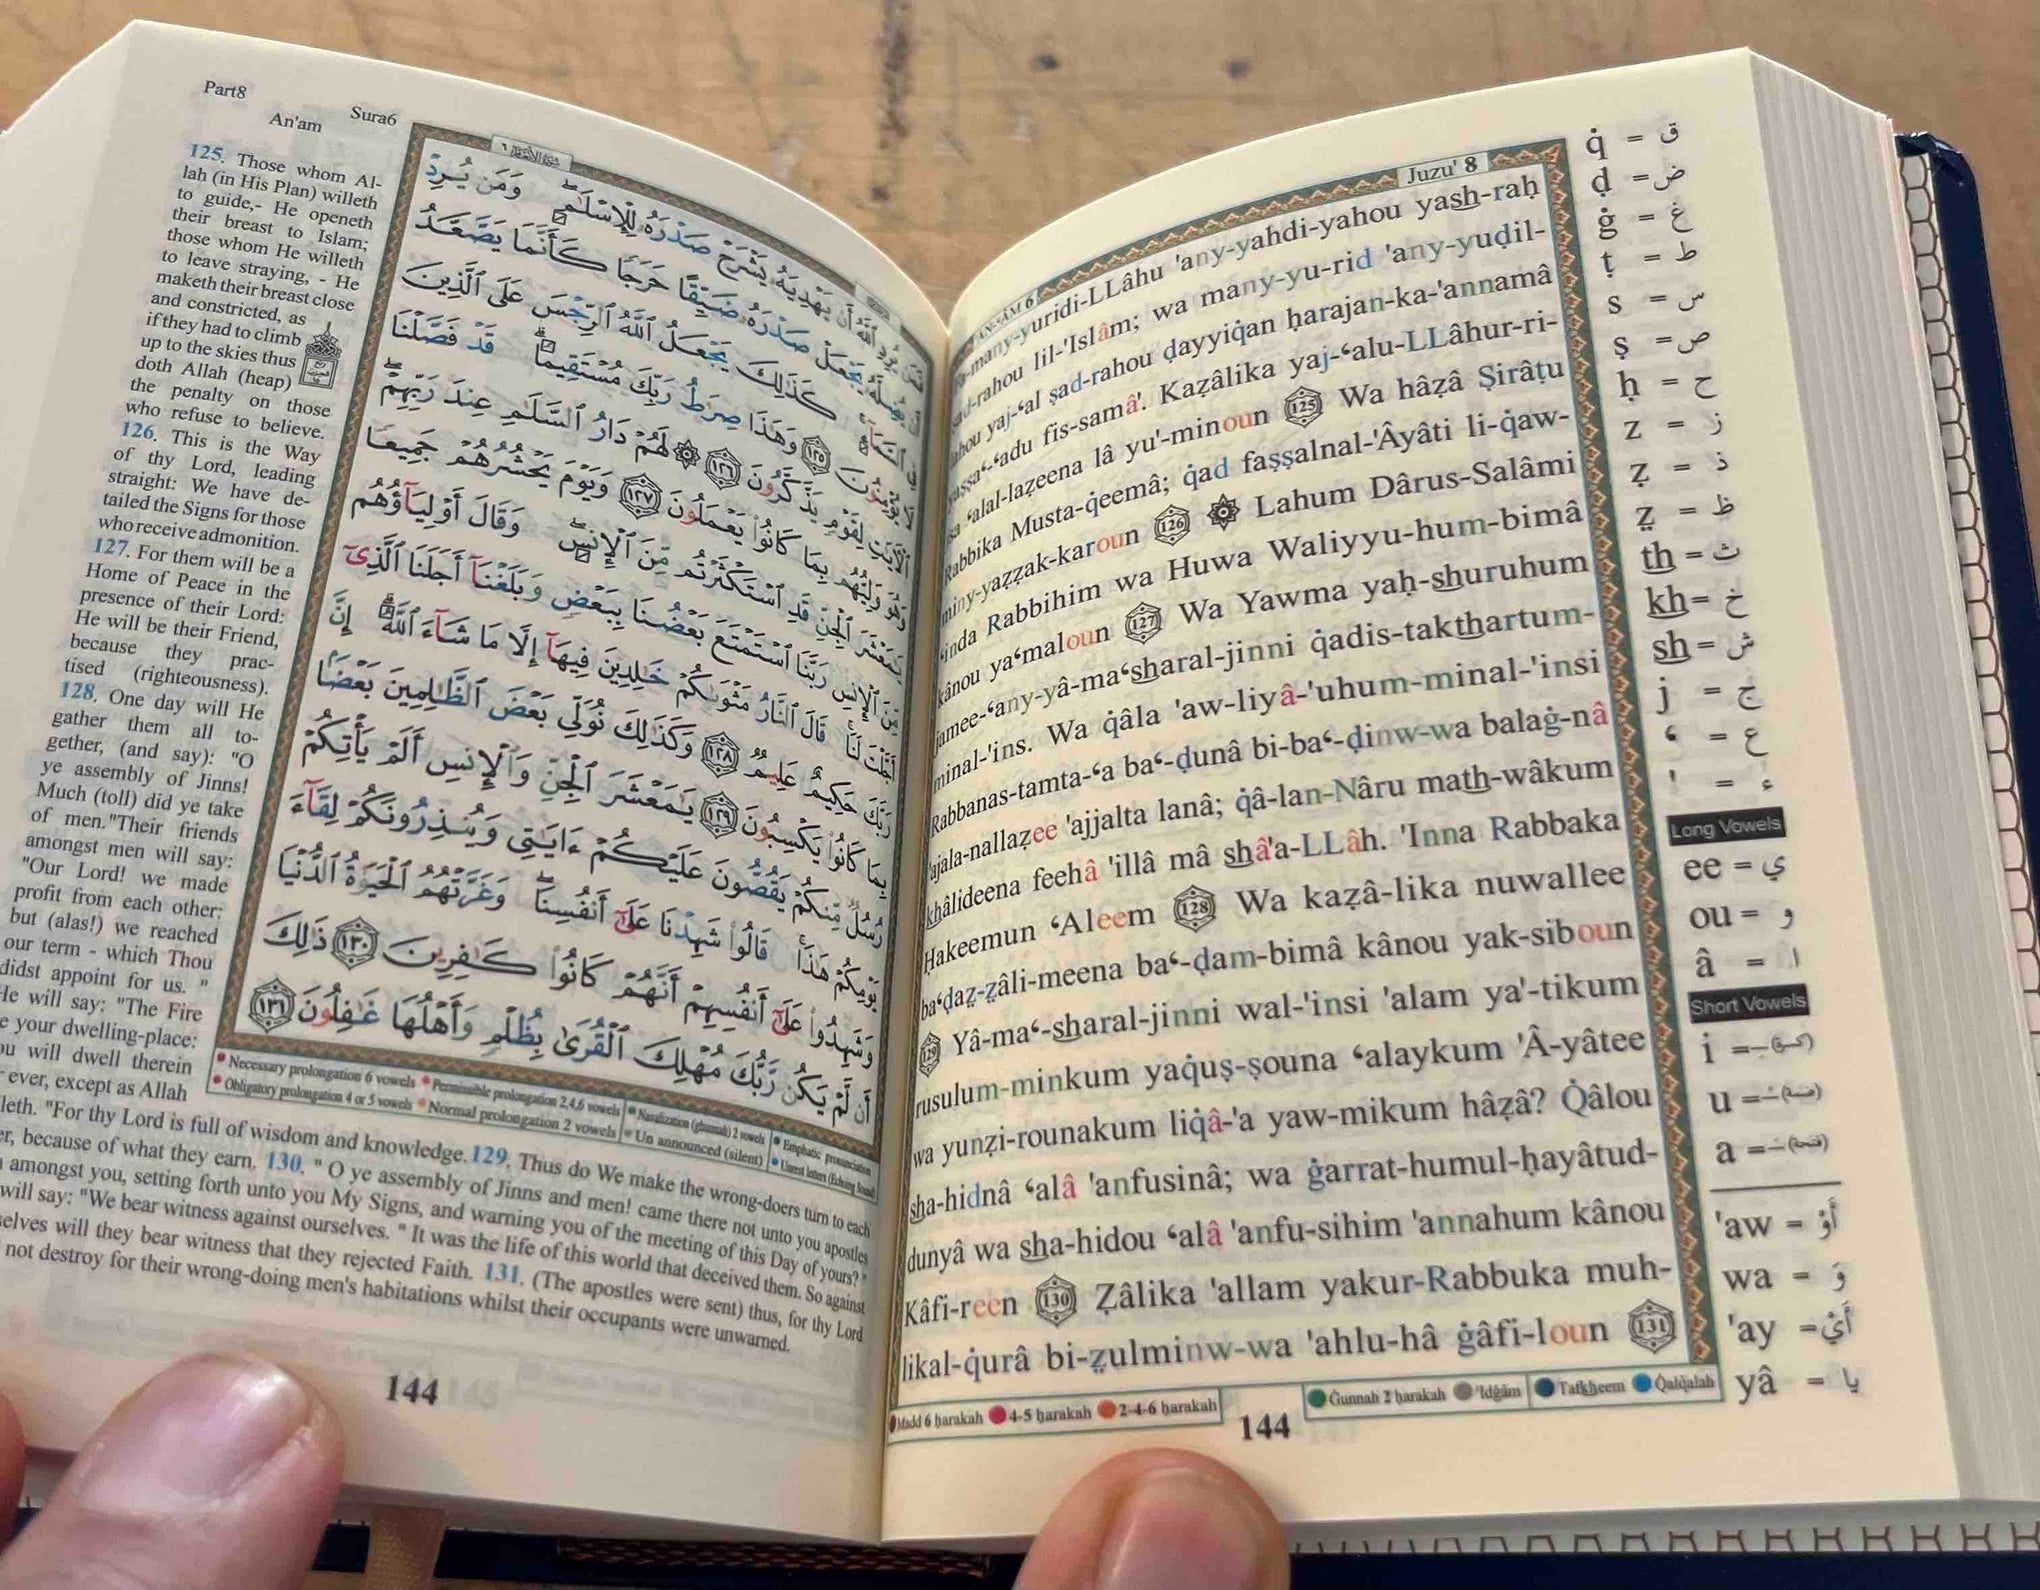 Part8
Sura6
An'am
125. Those whom Al-
lah (in His Plan) willeth
to guide,- He openeth
their breast to Islam;
those whom He willeth
to leave straying, - He
maketh their breast close
and constricted, as
if they had to climb
up to the skies thus
doth Allah (heap)
the penalty on those
who refuse to believe.
126. This is the Way
of thy Lord, leading
straight: We have de-
tailed the Signs for those
who receive admonition.
127. For them will be a
Home of Peace in the
presence of their Lord:
He will be their Friend,
because they prac-
tised (righteousness).
128. One day will He
gather them all to-
gether, (and say): "O
ye assembly of Jinns!
Much (toll) did ye take
of men."Their friends
amongst men will say:
"Our Lord! we made
profit from each other:
but (alas!) we reached
our term - which Thou
didst appoint for us. "
He will say: "The Fire
your dwelling-place:
will dwell therein
ever, except as Allah
"For thy Lord is full of wisdom and knowledge. 129. Thus do We make the wrong-doers turn to each
because of what they earn. 130. " O ye assembly of Jinns and men! came there not unto you apostles
amongst you, setting forth unto you My Signs, and warning you of the meeting of this Day of yours?"
will say: "We bear witness against ourselves. " It was the life of this world that deceived them. So against
will they bear witness that they rejected Faith. 131. (The apostles were sent) thus, for thy Lord
not destroy for their wrong-doing men's habitations whilst their occupants were unwarned.
فَمَن يُرِدِ ٱللَّهُ أَن يَهْدِيَهُۥ يَشْرَحْ صَدْرَهُۥ لِلْإِسْلَٰمِ ۖ وَمَن يُرِدْ
أَن يُضِلَّهُۥ يَجْعَلْ صَدْرَهُۥ ضَيِّقًا حَرَجًا كَأَنَّمَا يَصَّعَّدُ
فِى ٱلسَّمَآءِ ۚ كَذَٰلِكَ يَجْعَلُ ٱللَّهُ ٱلرِّجْسَ عَلَى ٱلَّذِينَ
لَا يُؤْمِنُونَ ١٢٥ وَهَٰذَا صِرَٰطُ رَبِّكَ مُسْتَقِيمًا ۗ قَدْ فَصَّلْنَا
ٱلْءَايَٰتِ لِقَوْمٍ يَذَّكَّرُونَ ١٢٦ ۞ لَهُمْ دَارُ ٱلسَّلَٰمِ عِندَ رَبِّهِمْ ۖ
وَهُوَ وَلِيُّهُم بِمَا كَانُوا۟ يَعْمَلُونَ ١٢٧ وَيَوْمَ يَحْشُرُهُمْ جَمِيعًا
يَٰمَعْشَرَ ٱلْجِنِّ قَدِ ٱسْتَكْثَرْتُم مِّنَ ٱلْإِنسِ ۖ وَقَالَ أَوْلِيَآؤُهُم
مِّنَ ٱلْإِنسِ رَبَّنَا ٱسْتَمْتَعَ بَعْضُنَا بِبَعْضٍ وَبَلَغْنَآ أَجَلَنَا ٱلَّذِىٓ
أَجَّلْتَ لَنَا ۚ قَالَ ٱلنَّارُ مَثْوَىٰكُمْ خَٰلِدِينَ فِيهَآ إِلَّا مَا شَآءَ ٱللَّهُ ۗ إِنَّ
رَبَّكَ حَكِيمٌ عَلِيمٌ ١٢٨ وَكَذَٰلِكَ نُوَلِّى بَعْضَ ٱلظَّٰلِمِينَ بَعْضًۢا
بِمَا كَانُوا۟ يَكْسِبُونَ ١٢٩ يَٰمَعْشَرَ ٱلْجِنِّ وَٱلْإِنسِ أَلَمْ يَأْتِكُمْ
رُسُلٌ مِّنكُمْ يَقُصُّونَ عَلَيْكُمْ ءَايَٰتِى وَيُنذِرُونَكُمْ لِقَآءَ
يَوْمِكُمْ هَٰذَا ۚ قَالُوا۟ شَهِدْنَا عَلَىٰٓ أَنفُسِنَا ۖ وَغَرَّتْهُمُ ٱلْحَيَوٰةُ ٱلدُّنْيَا
وَشَهِدُوا۟ عَلَىٰٓ أَنفُسِهِمْ أَنَّهُمْ كَانُوا۟ كَٰفِرِينَ ١٣٠ ذَٰلِكَ
أَن لَّمْ يَكُن رَّبُّكَ مُهْلِكَ ٱلْقُرَىٰ بِظُلْمٍ وَأَهْلُهَا غَٰفِلُونَ ١٣١
Necessary prolongation 6 vowels Permissible prolongation 2,4,6 vowels Nasalization (ghunnah) 2 vowels Emphatic pronunciation
Obligatory prolongation 4 or 5 vowels Normal prolongation 2 vowels Un announced (silent) Unrest letters (Echoing Sound)
144
AN-'ÂM 6
Juzu' 8
Fa-many-yuridi-LLâhu 'any-yahdi-yahou yash-raḥ
sad-rahou lil-'Islâm; wa many-yu-rid 'any-yuḍil-
lahou yaj-ʻal ṣad-rahou ḍayyiq̇an ḥarajan-ka-'annamâ
yaṣṣaʻ-ʻadu fis-samâ'. Kaẓâlika yaj-ʻalu-LLâhur-ri-
sa ʻalal-laẓeena lâ yu'-minoun 125 Wa hâẓâ Ṣirâṭu
Rabbika Musta-q̇eemâ; q̇ad faṣṣalnal-'Âyâti li-q̇aw-
miny-yaẓẓak-karoun 126 ۞ Lahum Dârus-Salâmi
ʻinda Rabbihim wa Huwa Waliyyu-hum-bimâ
kânou yaʻmaloun 127 Wa Yawma yaḥ-shuruhum
jamee-ʻany-yâ-maʻsharal-jinni q̇adis-takthartum-
minal-'ins. Wa q̇âla 'aw-liyâ-'uhum-minal-'insi
Rabbanas-tamta-ʻa baʻ-ḍunâ bi-baʻ-ḍinw-wa balaġ-nâ
'ajala-nallaẓee 'ajjalta lanâ; q̇â-lan-Nâru math-wâkum
khâlideena feehâ 'illâ mâ shâ'a-LLâh. 'Inna Rabbaka
Ḥakeemun ʻAleem 128 Wa kaẓâ-lika nuwallee
baʻḍaẓ-ẓâli-meena baʻ-ḍam-bimâ kânou yak-siboun
129 Yâ-maʻ-sharal-jinni wal-'insi 'alam ya'-tikum
rusulum-minkum yaq̇uṣ-ṣouna ʻalaykum 'Â-yâtee
wa yunẓi-rounakum liq̇â-'a yaw-mikum hâẓâ? Q̇âlou
sha-hidnâ ʻalâ 'anfusinâ; wa ġarrat-humul-ḥayâtud-
dunyâ wa sha-hidou ʻalâ 'anfu-sihim 'annahum kânou
Kâfi-reen 130 Ẓâlika 'allam yakur-Rabbuka muh-
likal-q̇urâ bi-ẓulminw-wa 'ahlu-hâ ġâfi-loun 131
Madd 6 ḥarakah 4-5 ḥarakah 2-4-6 ḥarakah
144
Ġunnah 2 ḥarakah 'Idġâm Tafkheem Q̇alq̇alah
q̇ = ق
ḍ = ض
ġ = غ
ṭ = ط
s = س
ṣ = ص
ḥ = ح
z = ز
ẓ = ذ
ẓ̤ = ظ
th = ث
kh = خ
sh = ش
j = ج
ʻ = ع
' = ء
Long Vowels
ee = ي
ou = و
â = ا
Short Vowels
i = ـِ (كسرة)
u = ـُ (ضمة)
a = ـَ (فتحة)
'aw = أَوْ
wa = وَ
'ay = أَيْ
yâ = يا